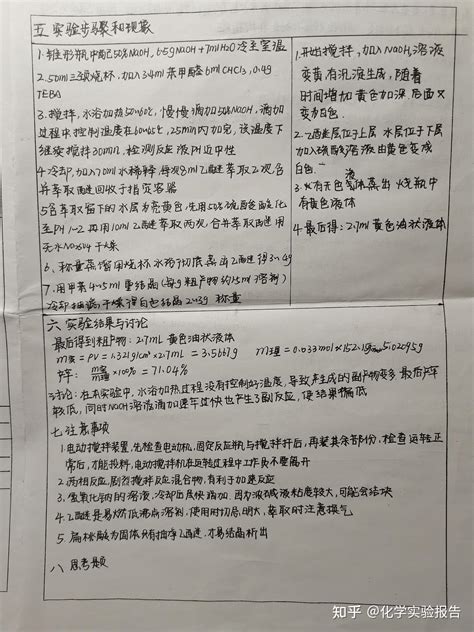 五 实验步骤和现象
1.锥形瓶中配50%NaOH, 6.5gNaOH+7mlH2O 冷至室温
2.50ml三颈烧瓶, 加入3.4ml苯甲醛 6mlCHCl3, 0.4g
TEBA
3.搅拌, 水浴加热50~60℃, 慢慢滴加50%NaOH, 滴加
过程中控制温度在60~65℃, 25min内加完, 该温度下
继续搅拌30min, 检测反应液PH近中性
4.冷却, 加入70ml水稀释, 每次8ml乙醚萃取2次, 合
并萃取乙醚回收于指定容器
5.合萃取留下的水层为亮黄色, 先用50%硫酸酸化
至PH 1-2 再用10ml乙醚萃取两次, 合并萃取乙醚用
无水Na2SO4干燥
6、称量蒸馏用烧杯 水浴
7、用甲苯 重结晶(每g粗产物约1.5ml溶剂)
冷却抽滤, 干燥得白色结晶 称量
1.开始搅拌, 加入NaOH溶液
变黄有沉淀生成, 随着
时间增加 黄色加深, 后面又
变为白色.
2.乙醚层位于上层 水层位于下层
加入硫酸溶液由黄色变成
白色.
3.水浴 蒸出 烧瓶中
有黄色液体
4.最后得: 2.7ml黄色油状液体
六 实验结果与讨论
最后得到粗产物: 2.7ml 黄色油状液体
m实=ρV=1.321g/cm³×2.7mL=3.5667g m理=0.033mol×152.15g/mol=5.02095g
产率: m实/m理×100%=71.04%
讨论: 在本实验中, 水浴加热过程没有控制好温度, 导致产生成的副产物变多 最后产率
较低, 同时NaOH溶液滴加速率过快也产生了副反应, 使结果偏低
七 注意事项
1.电动搅拌装置, 先检查电动机, 固定反应瓶与搅拌杆后, 再装其余部份, 检查运转正
常后, 才能投料, 电动搅拌机在运转过程中工作员不要离开
2.两相反应, 剧烈搅拌反应混合物, 有利于加速反应
3.氢氧化钠的溶液, 冷却后尽快滴加, 因为浓碱液粘度较大, 可能会结块
4.乙醚是易燃低沸点溶剂, 使用时切忌明火, 萃取时注意换气
5.扁桃酸为固体 只有抽净乙醚, 才易结晶析出
八 思考题
知乎 @化学实验报告